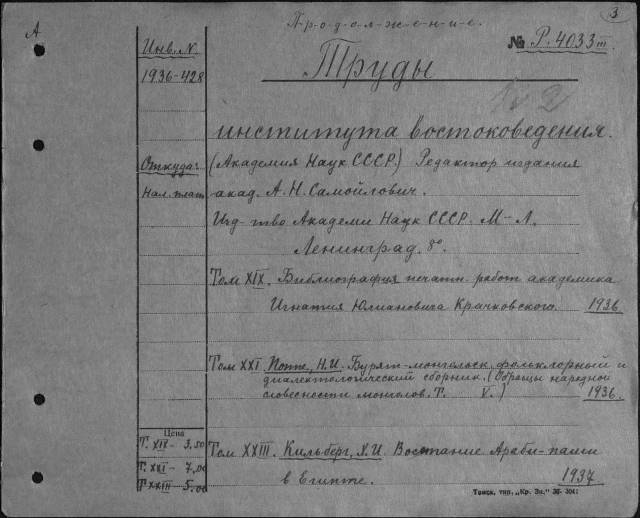 П-р-о-д-о-л-ж-е-н-и-е.
3
А
Инв. N
1936-428
№ Р. 4033 III
Труды
института востоковедения.
Откуда:
Нал. плат.
(Академия Наук СССР) Редактор издания
акад. А. Н. Самойлович.
Изд-тво Академи Наук СССР. М-Л.
Ленинград. 8°.
Том XIX. Библиография печатн. работ академика
Игнатия Юлиановича Крачковского. 1936
Том XXI Поппе, Н.И. Бурят-монгольск. фольклорный и
диалектологический сборник. (Образцы народной
словесности монголов. Т. V.) 1936.
Цена
Т. XIX - 3.50
Т. XXI - 7.00
Т XXIII 5.00
Том XXIII. Кильберг, Х.И. Восстание Араби-паши
в Египте. 1937
Томск, тип. „Кр. Зн."